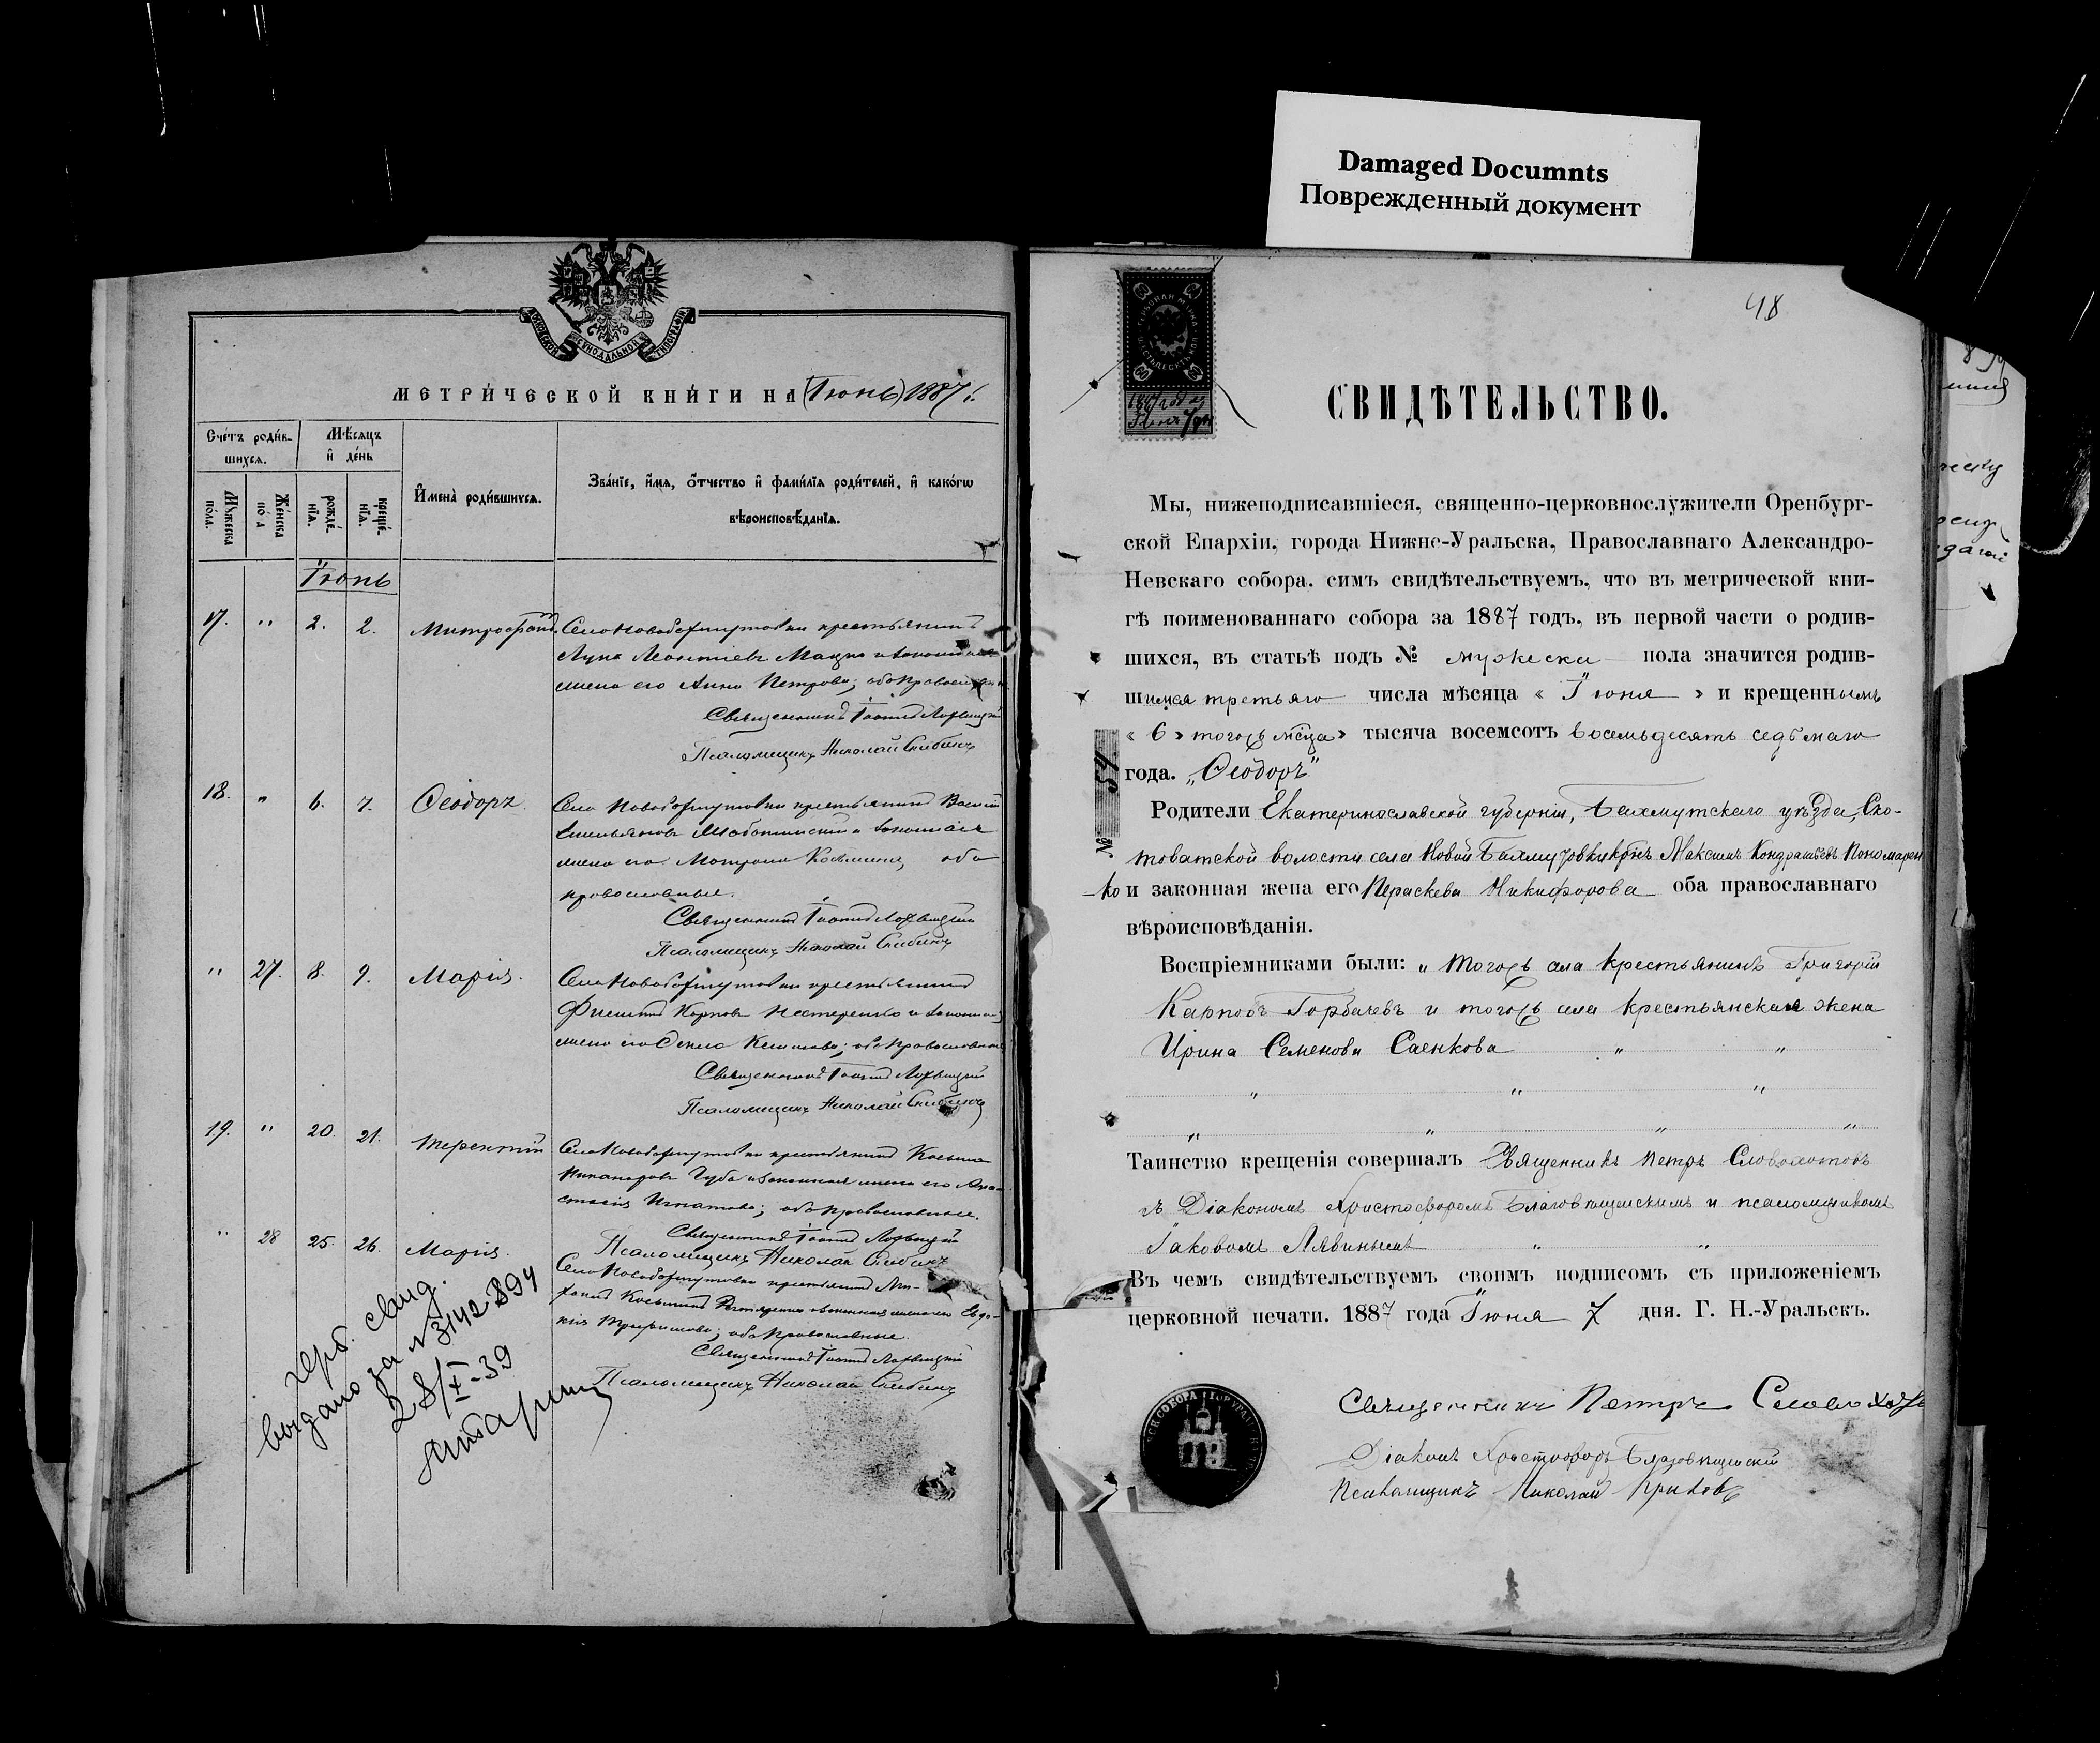 Damaged Documnts
Поврежденный документ
СѴНОДАЛЬНОЙ ТИПОГРАФІИ
МЕТРИ́ЧЕСКОЙ КНИ́ГИ НА Іюнь 1887 г.
Сче́тъ роди́в-
шихся.
Мѣ́сяцъ
и҆ де́нь
Мꙋ́жеска
по́ла.
Же́нска
по́ла
рожде́-
нїѧ.
креще́-
нїѧ.
И҆мена̀ роди́вшихся.
Зва́нїе, и҆́мѧ, ѻ҆́тчество и҆ фами́лїѧ роди́телей, и҆ како́гѡ
вѣроисповѣ́данїѧ.
Іюнь
17. " 2. 2. Митрофанъ. Села Новобахмутовки крестьянинъ
Лука Леонтіевъ и законная
жена его Анна Петрова; оба православные
Священникъ Іоаннъ
Псаломщикъ Николай Скибинъ
18. " 6. 7. Ѳеодоръ. Села Новобахмутовки крестьянинъ Василій
Емельяновъ и законная
жена его Матрона Козьмина, оба
православные.
Священникъ Іоаннъ
Псаломщикъ Николай Скибинъ
" 27. 8. 9. Марія. Села Новобахмутовки крестьянинъ
Карповъ Нестеренко и законная
жена его; оба православные
Священникъ Іоаннъ
Псаломщикъ Николай Скибинъ
19. " 20. 21. Терентій Села Новобахмутовки крестьянинъ Козьма
Никаноровъ Губа и законная жена его Ана-
стасія Игнатова; оба православные.
Священникъ Іоаннъ
Псаломщикъ Николай Скибинъ
" 28 25. 26. Марія. Села Новобахмутовки крестьянинъ
Козьминъ и законная жена его Евдо-
кія Трофимова; оба православные.
Священникъ Іоаннъ
Псаломщикъ Николай Скибинъ
герб. свид.
выдано за № 3142894
28/X-39
48
ГЕРБОВАЯ МАРКА
ШЕСТЬДЕСЯТЪ КОП
60
1887 года
Іюня 7 дня
СВИДѢТЕЛЬСТВО.
Мы, нижеподписавшіеся, священно-церковнослужители Оренбург-
ской Епархіи, города Нижне-Уральска, Православнаго Александро-
Невскаго собора. симъ свидѣтельствуемъ, что въ метрической кни-
гѣ поименованнаго собора за 1887 годъ, въ первой части о родив-
шихся, въ статьѣ подъ № мужеска пола значится родив-
шимся третьяго числа мѣсяца « Іюня » и крещеннымъ
« 6 » тогожъ мѣсяца тысяча восемсотъ восемьдесятъ седьмаго
года. „Ѳеодоръ“
№ 54
Родители Екатеринославской губерніи, Бахмутскаго уѣзда, Ско-
товатской волости села Новой Бахмутовки кр-нъ Максимъ Кондратьевъ Пономарен
-ко и законная жена его Параскева Никифорова оба православнаго
вѣроисповѣданія.
Воспріемниками были: тогожъ села крестьянинъ Григорій
Карповъ Горбачевъ и тогожъ села крестьянская жена
Ирина Семенова Саенкова " "
" " "
" " " "
Таинство крещенія совершалъ Священникъ Петръ Словохотовъ
съ Діакономъ Христофоромъ Благовѣщенскимъ и псаломщикомъ
Іаковомъ " "
Въ чемъ свидѣтельствуемъ своимъ подписомъ съ приложеніемъ
церковной печати. 1887 года Іюня 7 дня. Г. Н.-Уральскъ.
Священникъ Петръ Словохотовъ
Діаконъ Христофоръ Благовѣщенскій
Псаломщикъ Николай